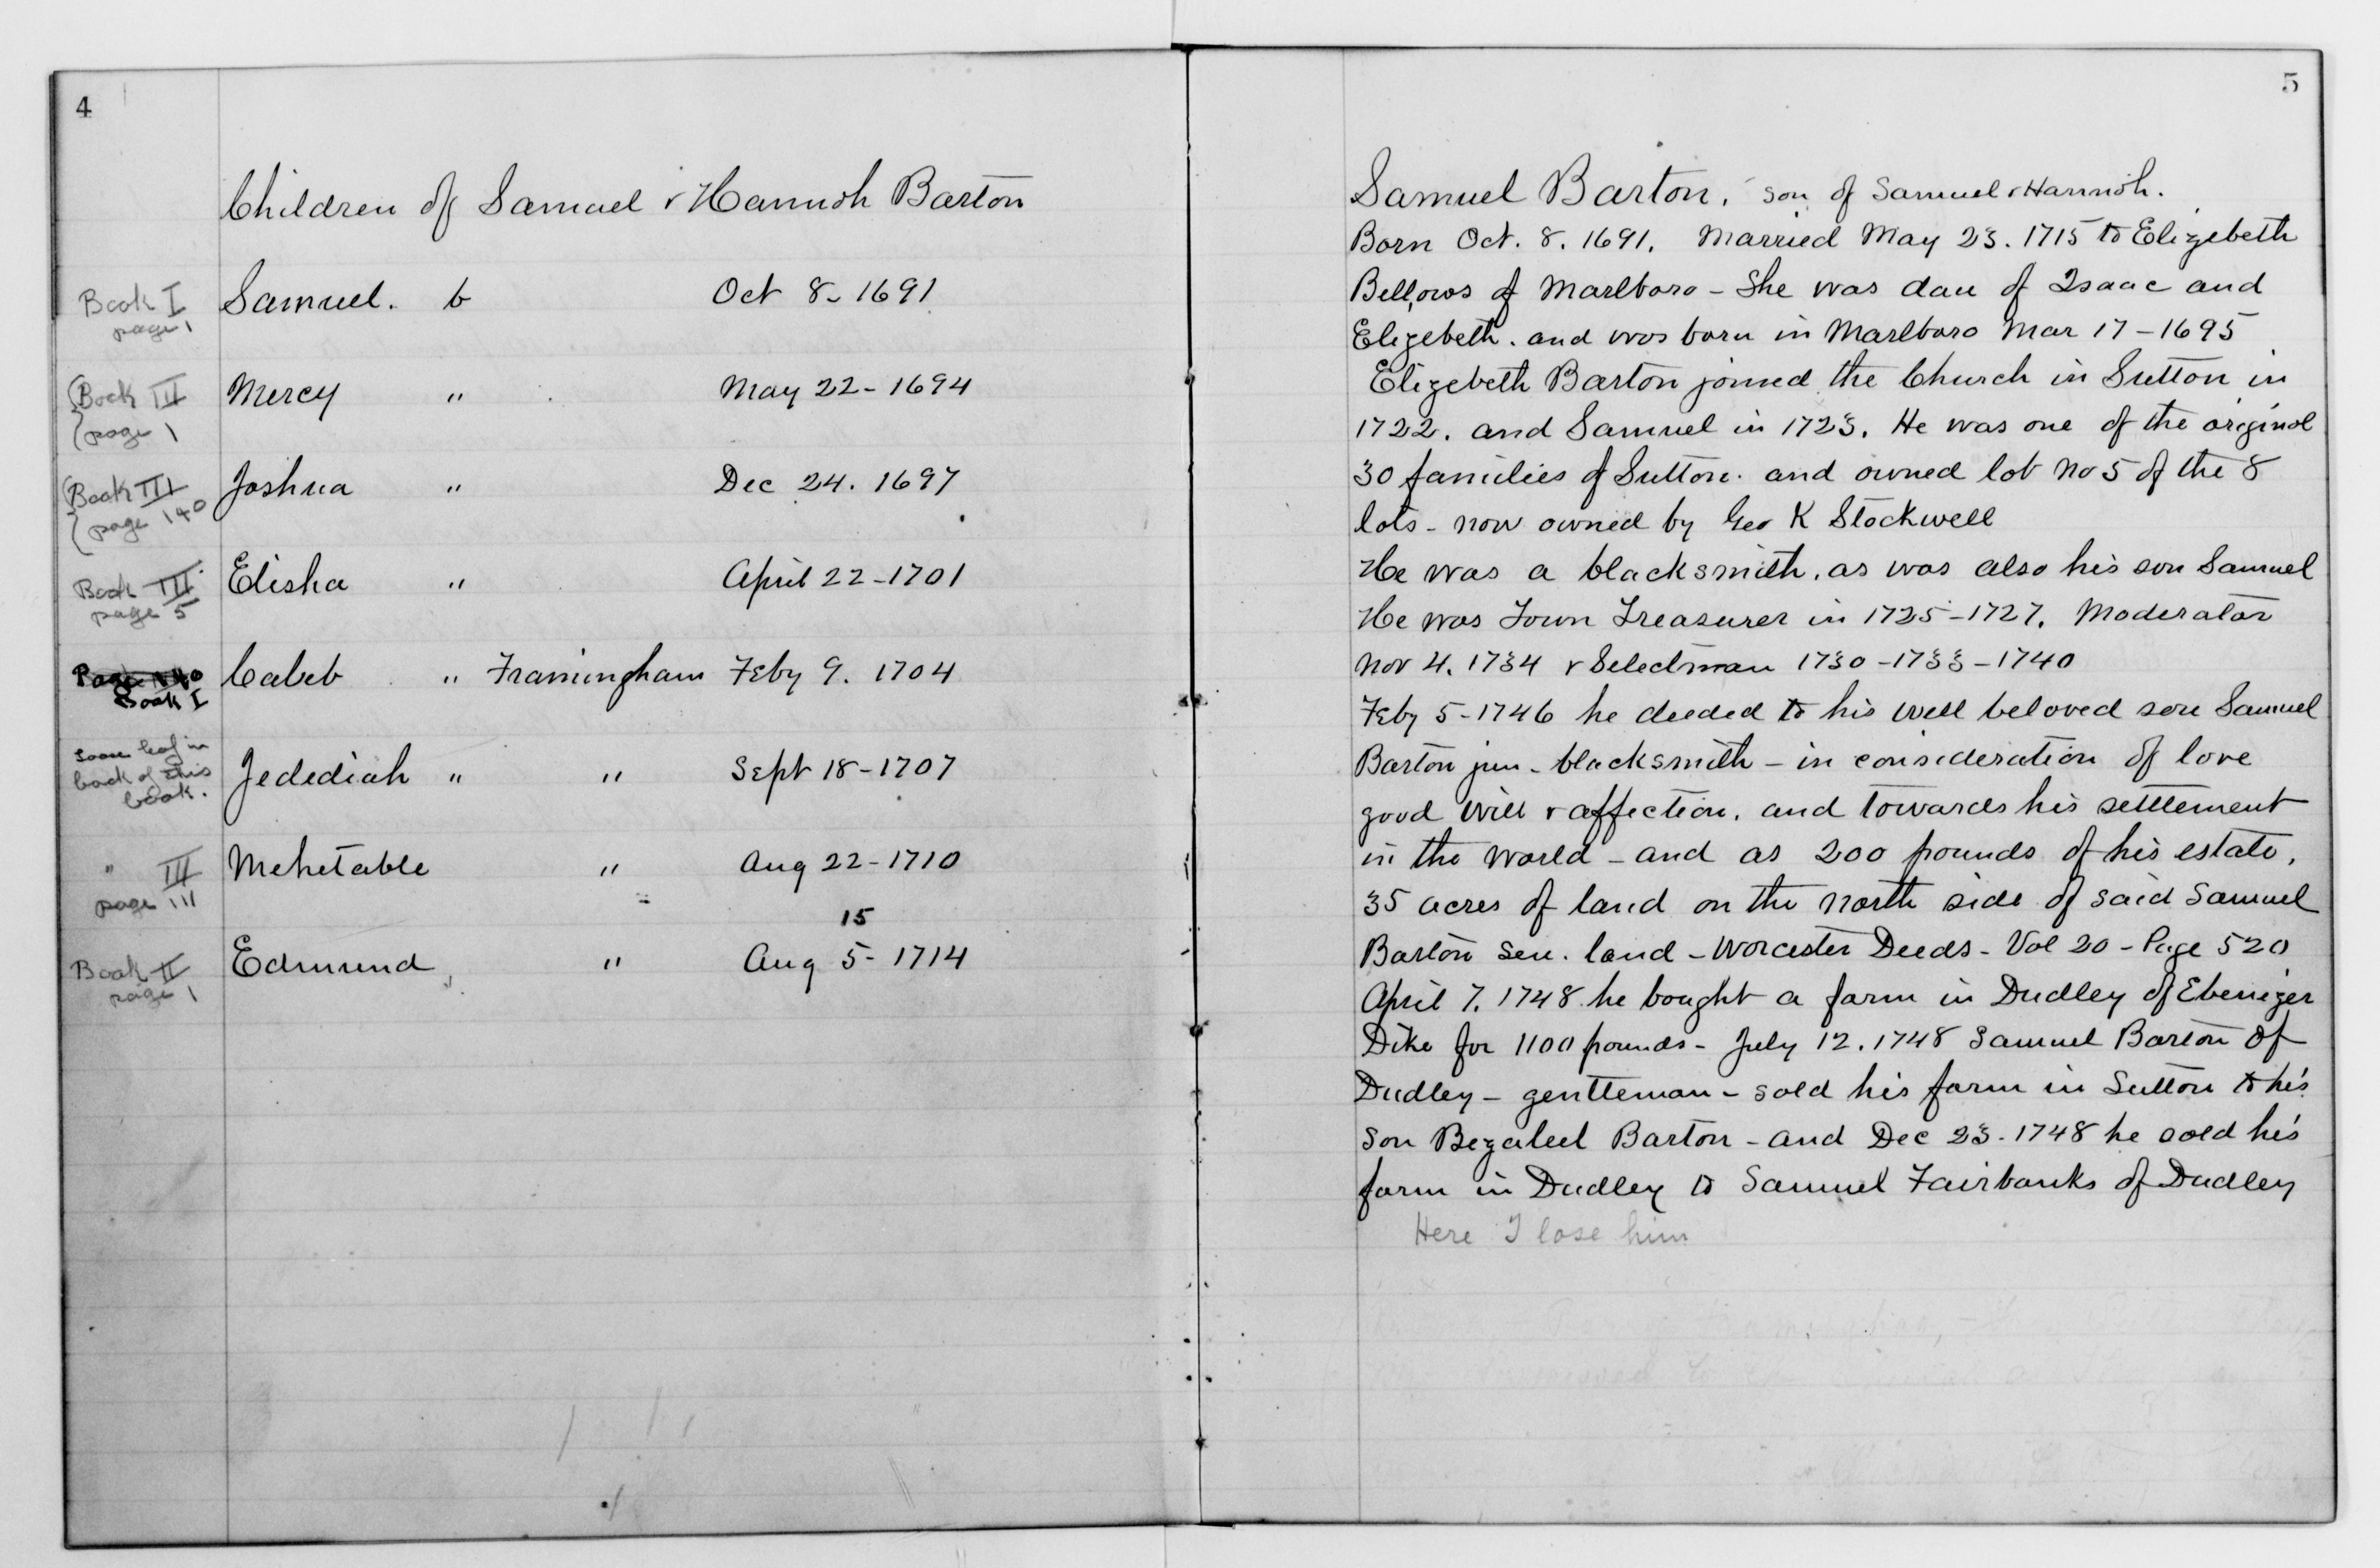 4
Children of Samuel & Hannah Barton
Book I
page 1
Samuel. b Oct 8 - 1691
Book III
page 1
Mercy " May 22 - 1694
Book III
page 140
Joshua " Dec 24. 1697
Book III
page 5
Elisha " April 22 - 1701
Page 140
Book I
Caleb " Framingham Feby 9. 1704
Loose leaf in
back of this
book.
Jedediah " " Sept 18 - 1707
" III
page 111
Mehetable " Aug 22 - 1710
15
Book II
page 1
Edmund, " Aug 5 - 1714
5
Samuel Barton, son of Samuel & Hannah.
Born Oct. 8. 1691. Married May 23. 1715 to Elizebeth
Bellows of Marlboro - She was dau of Isaac and
Elizebeth. and was born in Marlboro Mar 17 - 1695
Elizebeth Barton joined the Church in Sutton in
1722. and Samuel in 1723. He was one of the original
30 families of Sutton. and owned lot No 5 of the 8
lots - now owned by Geo K Stockwell
He was a blacksmith, as was also his son Samuel
He was Town Treasurer in 1725 - 1727. Moderator
Nov 4. 1734 & Selectman 1730 - 1733 - 1740
Feby 5 - 1746 he deeded to his well beloved son Samuel
Barton jun - blacksmith - in consideration of love
good will & affection, and towards his settlement
in the world - and as 200 pounds of his estate,
35 acres of land on the north side of said Samuel
Barton Sen. land - Worcester Deeds - Vol 20 - Page 520
April 7. 1748 he bought a farm in Dudley of Ebenezer
Dike for 1100 pounds - July 12. 1748 Samuel Barton of
Dudley - gentleman - sold his farm in Sutton to his
son Bezaleel Barton - and Dec 23. 1748 he sold his
farm in Dudley to Samuel Fairbanks of Dudley
Here I lose him